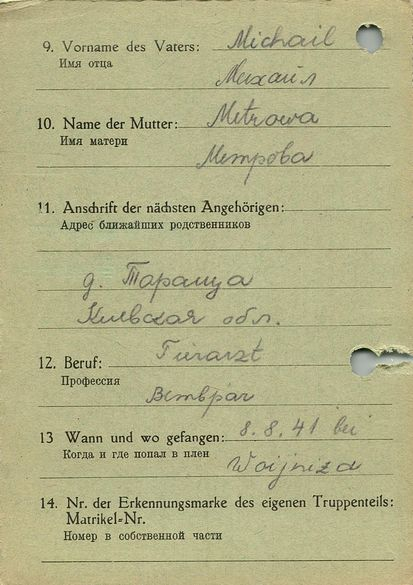 9. Vorname des Vaters: Michail
Имя отца
Михаил
10. Name der Mutter: Metrowa
Имя матери
Метрова
11. Anschrift der nächsten Angehörigen:
Адрес ближайших родственников
д. Тараща
Киевская обл.
12. Beruf: Tierarzt
Профессия
Ветврач
13 Wann und wo gefangen: 8.8.41 bei
Когда и где попал в плен
Woijniza
14. Nr. der Erkennungsmarke des eigenen Truppenteils:
Matrikel-Nr.
Номер в собственной части